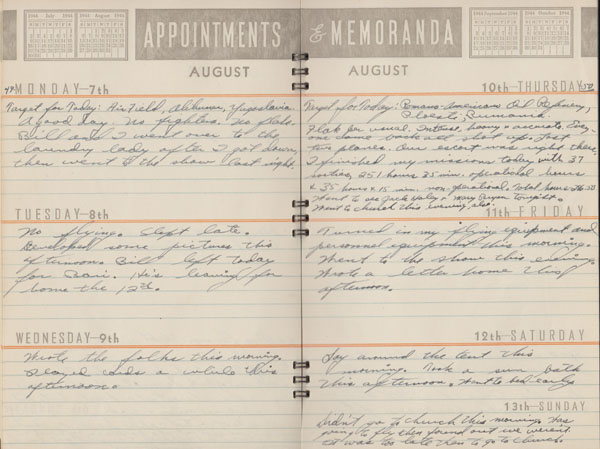 1944 July 1944
1944 August 1944
APPOINTMENTS
AUGUST
MONDAY—7th
Target for Today: Airfield, Alibunar, Yugoslavia
A good day. No fighters. No flak.
Bill and I went over to the
laundry lady after I got down,
then went to the show last night.
TUESDAY—8th
No flying. Slept late.
Developed some pictures this
afternoon. Bill left today
for Bari. He's leaving for
home the 12th.
WEDNESDAY—9th
Wrote the folks this morning.
Played cards a while this
afternoon.
& MEMORANDA
1944 September 1944
1944 October 1944
AUGUST
10th—THURSDAY
Target for Today: Romano-American Oil Refinery,
Ploesti, Rumania.
Flak per usual. Intense, heavy & accurate.
two planes. Our escort was right there.
I finished my missions today with 37
sorties, 251 hours 35 min. operational hours
& 35 hours & 15 min. non-operational. Total hours
Went to see Jack Haley & tonight.
Went to church this evening also.
11th—FRIDAY
Turned in my flying equipment and
personnel equipment this morning.
Went to the show this evening.
Wrote a letter home this
afternoon.
12th—SATURDAY
Lay around the tent this
morning. Took a sun bath
this afternoon. Went to bed early.
13th—SUNDAY
Didn't go to church this morning. Was
going to fly then found out we weren't
It was too late then to go to church.